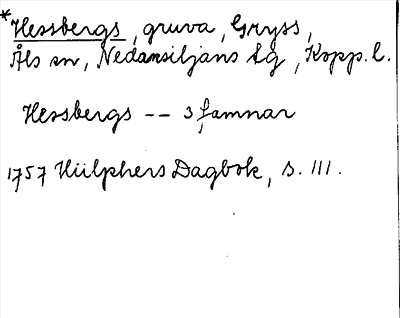 *Hessbergs, gruva, Gryss,
Åls sn, Nedansiljans tg, Kopp. l.
Hessbergs -- 3 famnar
1757 Hülphers Dagbok, s. 111.